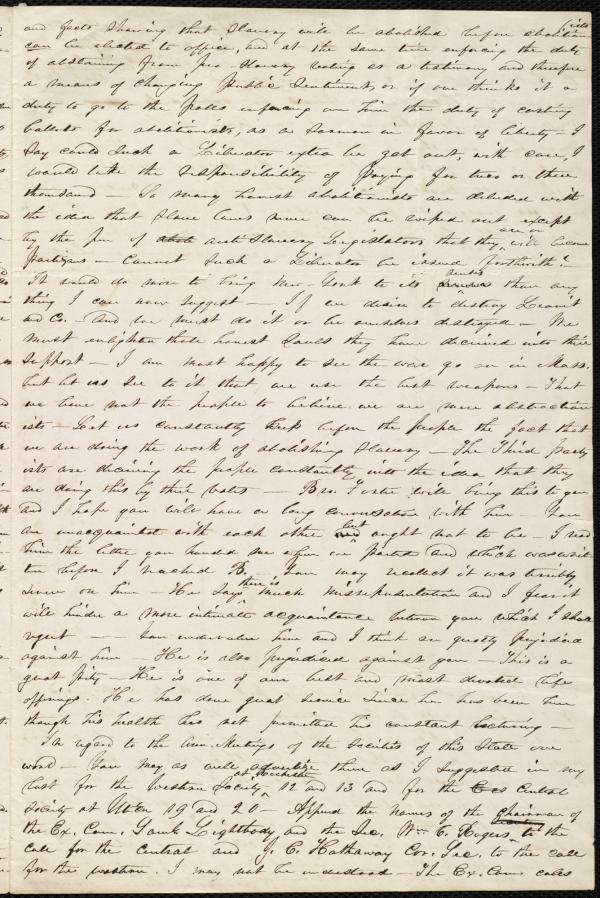 and facts showing that slavery will be abolished before abolition
ists
can be elected to office, and at the same time enforcing the duty
of abstaining from pro-slavery voting as a testimony and therefore
a means of changing public sentiment, or if one thinks it a
duty to go to the polls enforcing on him the duty of casting
ballots for abolitionists, as a sermon in favor of liberty - I
say could such a Liberator extra be got out, with care, I
would take the responsibility of paying for two or three
thousand - So many honest abolitionists are deluded with
the idea that slave laws never can be wiped out except
by the pen of anti slavery Legislators that they are or will become
partizans - Cannot such a Liberator be issued forthwith?
It would do more to bring New-York to its senses than any
thing I can now suggest - If we desire to destroy Leavitt
and Co. - And we must do it or be ourselves destroyed - We
must enlighten those honest souls they have deceived into their
support - I am most happy to see the war go on in Mass.
but let us see to it that we use the best weapons - That
we leave not the people to believe we are mere abstraction
ists - Let us constantly keep before the people the fact that
we are doing the work of abolishing slavery - The Third party
ists are deceiving the people constantly with the idea that they
are doing this by their votes - Bro. Foster will bring this to you
and I hope you will have a long conversation with him - You
are unacquainted with each other but ought not to be - I read
him the letter you handed me when we parted and which was writ
ten before I reached B. You may recollect it was terribly
severe on him - He says there is much misrepresentation and I fear it
will hinder a more intimate acquaintance between you which I shall
regret - - You undervalue him and I think are greatly prejudiced
against him - He is also prejudiced against you - This is a
great pity - He is one of our best and most devoted life
offerings. He has done great service since he has been here
though his health has not permitted his constant lecturing -
In regard to the Ann. Meetings of the Societies of this State one
word - You may as well advertise them as I suggested in my
last for the Western Society at Rochester 12 and 13 and for the Central
Society at Utica 19 and 20 - Append the names of the Chairman of
the Ex. Com. Lightbody and the Sec. Wm. C. Rogers to the
call for the central and J. C. Hathaway Cor. Sec. to the call
for the western. I may not be understood - The Ex. Com. calls